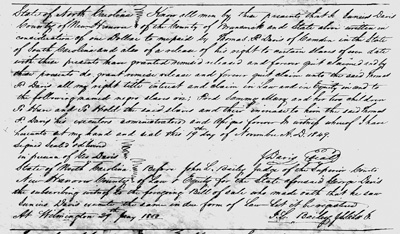 State of North Carolina } Know all men by these presents that I Eunice Davis
County of } of the County of Brunswick and State above written in
consideration of one Dollar to me paid by Thomas R Davis of Camden in the State
of South Carolina and also of a release of his right to certain slaves of even date
with these presents have granted remised released and forever quit claimed and by
these presents do grant remise release and forever quit claim unto the said Thomas
R Davis all my right title interest and claim in Law and in Equity in and to
the following named negro slaves viz: and her two children
To Have and to Hold the said slaves and their increase to him the said Thomas
R Davis his executors administrators and assigns forever In witness whereof I have
hereunto set my hand and seal this 19th day of November A.D. 1849.
Signed Sealed & delivered
in presence of Geo Davis Davis Seal
State of North Carolina } Before John L. Bailey Judge of the Superior Courts
New Hanover County } of Law & Equity for the State aforesaid George Davis
the subscribing witness to the foregoing Bill of sale who made oath that he saw
Eunice Davis execute the same in due form of Law Let it be registered
At Wilmington 29 May 1850 J. L. Bailey